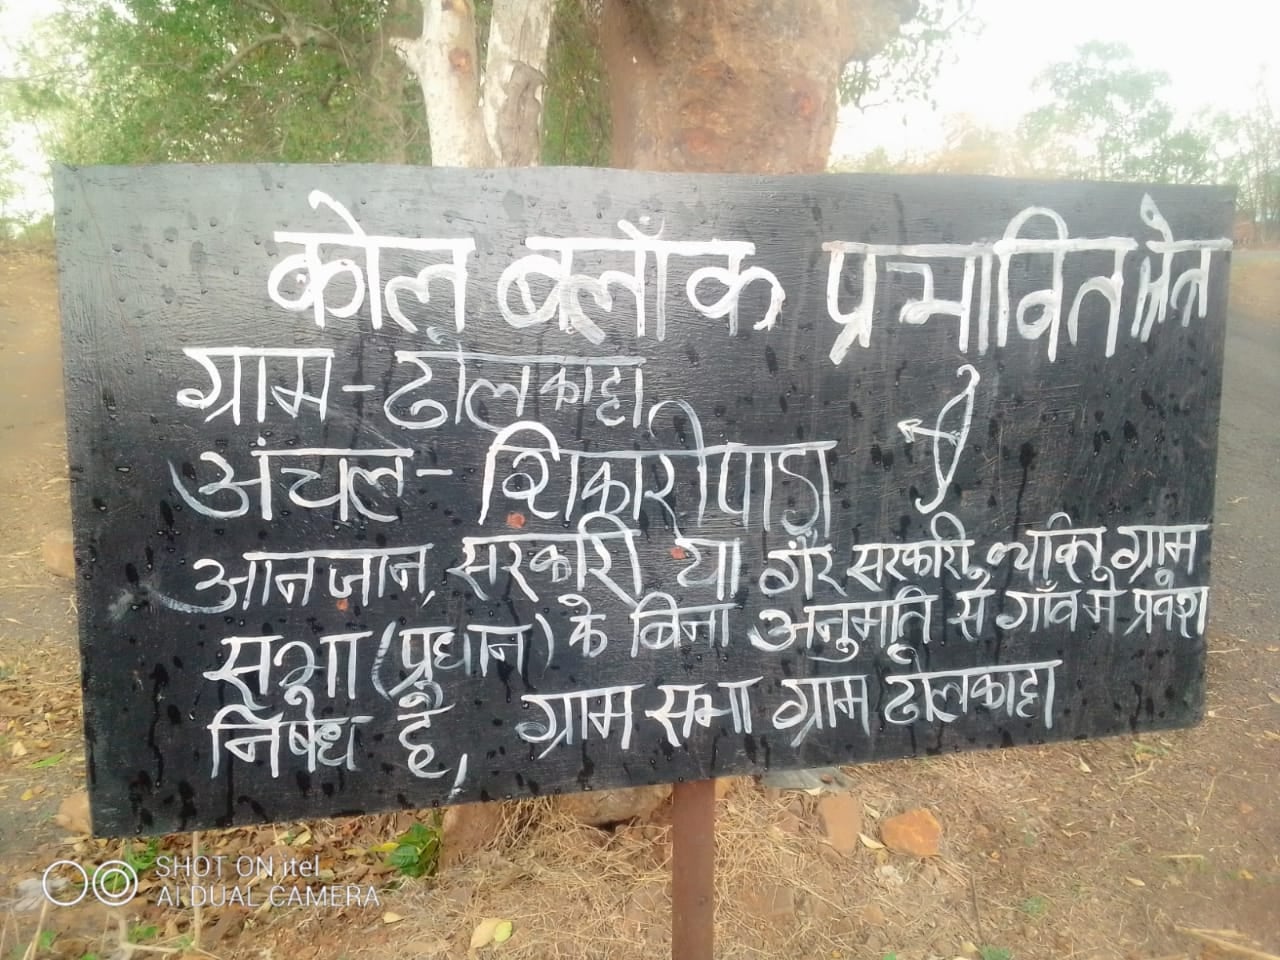 कोल ब्लॉक प्रभावित क्षेत्र
ग्राम - ढोलकाट्टा
अंचल - शिकारीपाड़ा
आनजान, सरकारी या गैर सरकारी व्यक्ति ग्राम
सभा (प्रधान) के बिना अनुमति से गाँव मे प्रवेश
निषेध है, ग्राम सभा ग्राम ढोलकाट्टा
SHOT ON itel
AI DUAL CAMERA